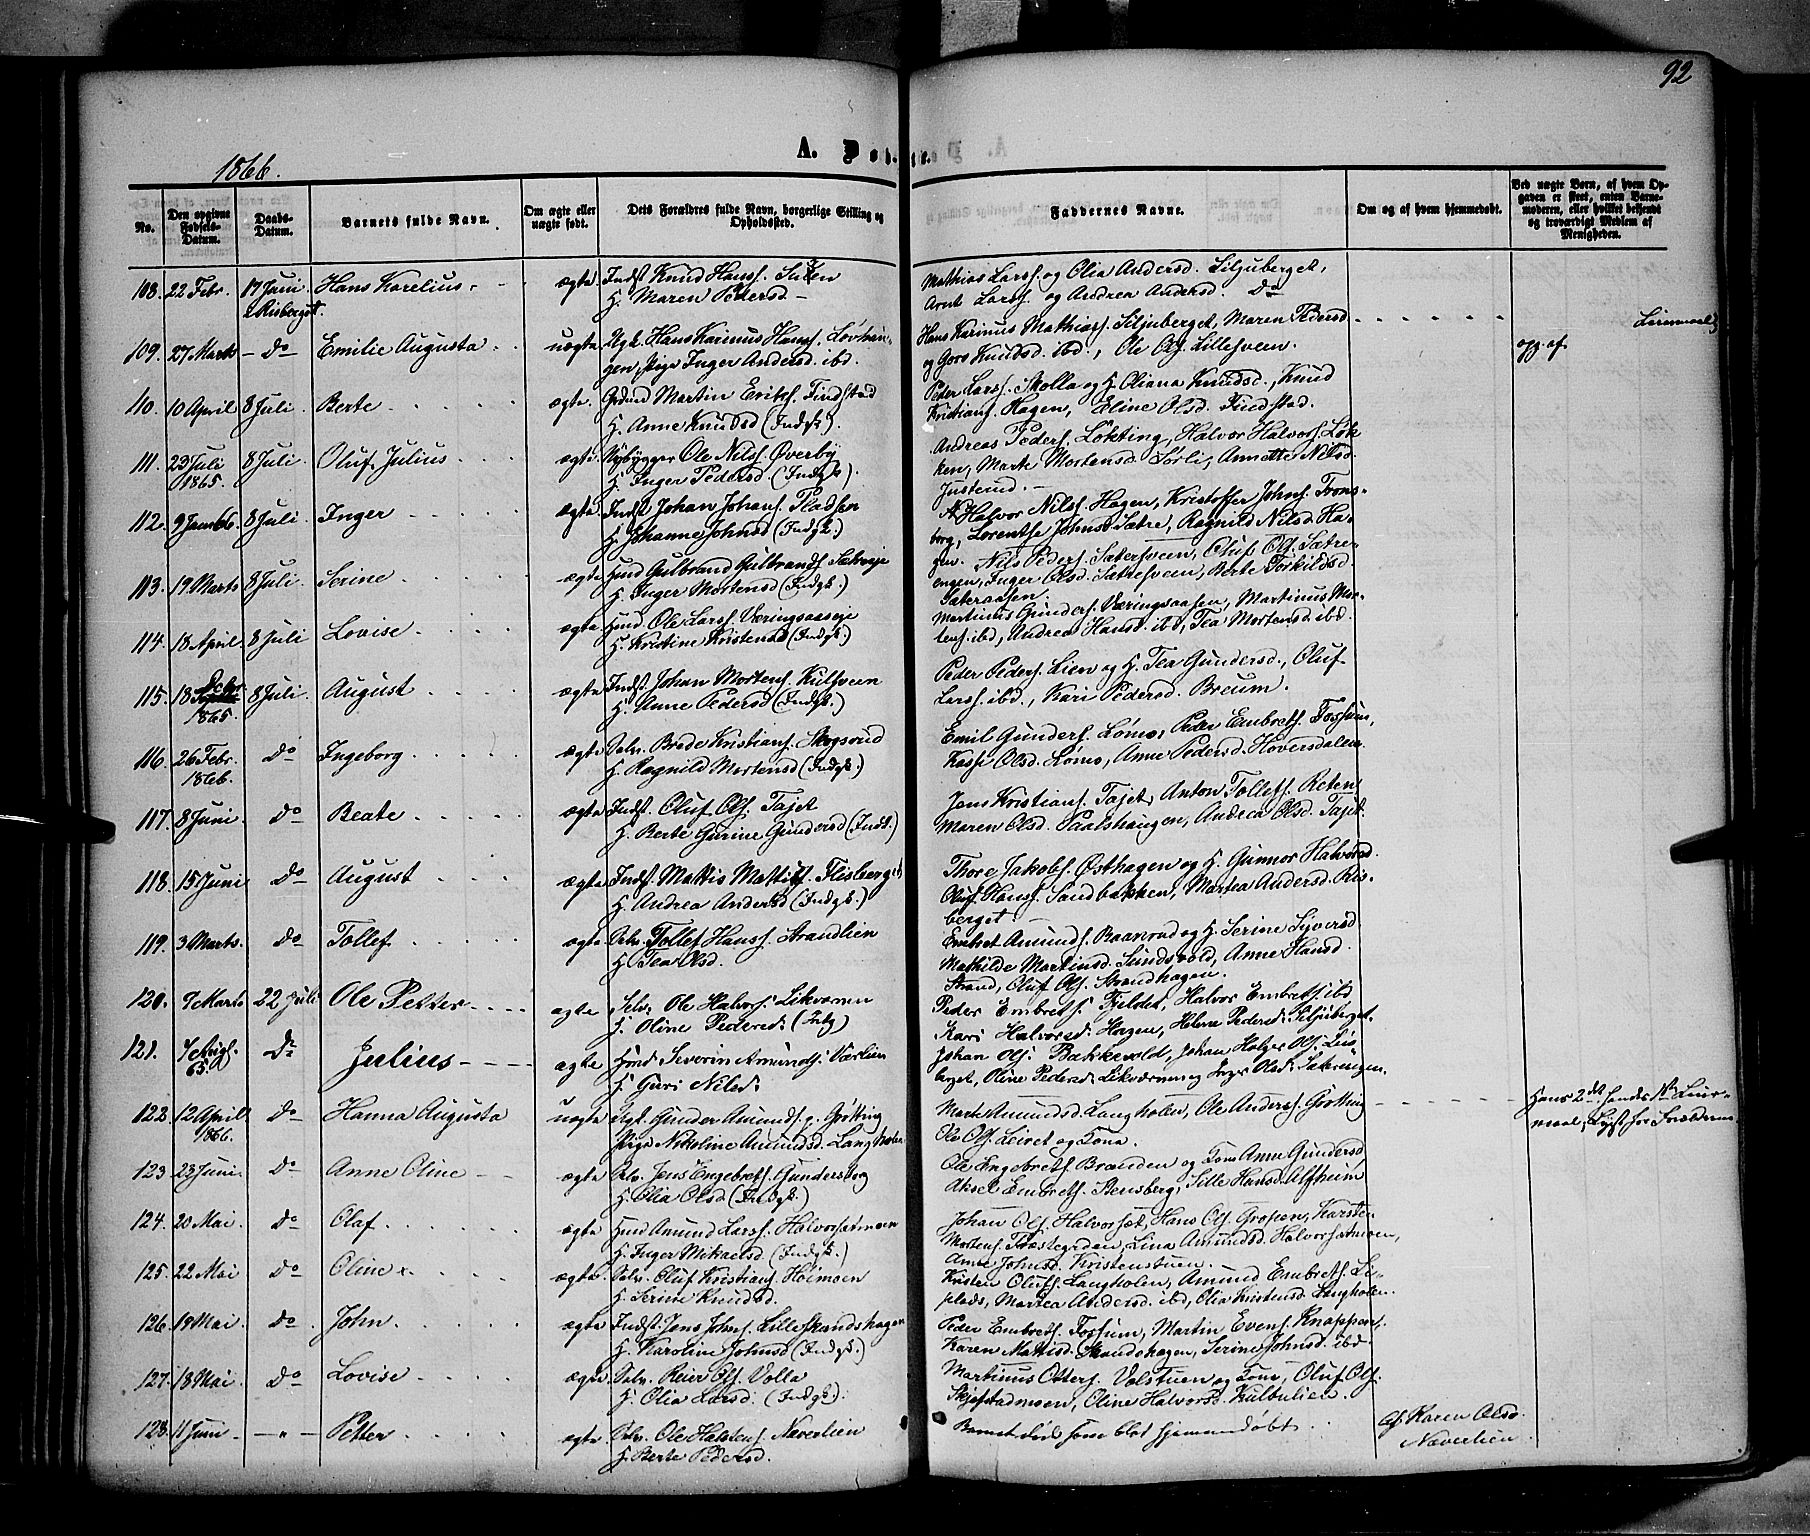 92
A. Døbte.
1866.
No.
Den opgivne Fødsels-Datum.
Daabs-Datum.
Barnets fulde Navn.
Om ægte eller uægte født.
Dets Forældres fulde Navn, borgerlige Stilling og Opholdssted.
Faddernes Navne.
Om og af hvem hjemmedøbt.
Ved uægte Børn, af hvem Opgaven er skeet, enten Barnemoderen, eller hvilket bekjendt og troværdigt Medlem af Menigheden.
108. 22 Febr. 17 Juni Hans Karelius. ægte Indst Knud Hanss.
Risberget. H. Maren Pedersd
Mathias Larss. og Olia Andersd. Siljuberget,
Arnt Larss. og Andrea Andersd. Do
109. 27 Marts Do Emilie Augusta uægte Ugk. Hans Karinus Hanss. Løvhau-
gen, Pige Inger Andersd. ibd.
Hans Karinus Mathiass. Siljuberget, Maren Pedersd
og Goro Knudsd. ibd., Ole Ols. Lillesveen.
opg. af
110. 10 April 8 Juli Berte ægte Martin Eriks. Findstad
H. Anne Knudsd (Indgk).
Peder Larss. Skolla og H. Oliana Knudsd., Knud
Kristians. Hagen, Eline Olsd. Findstad.
111. 23 Juli 8 Juli Oluf Julius ægte Nybygger Ole Nilss. Øverby
1865. H. Inger Pedersd. (Indgk).
Andreas Peders. Løkting, Halvor Halvors. Løk
ken, Marte Mortensd. Sørli, Annette Nilsd.
112. 9 Jan 66. 8 Juli Inger ægte Indst Johan Johans. Pladsen
H. Johanne Johnsd (Indgk.)
Halvor Nilss. Hagen, Kristoffer Johns. Trons-
berg, Lorentse Johnsd. Sætre, Ragnild Nilsd. Ha-
gen.
113. 19 Marts 8 Juli Serine ægte Husd Gulbrand Gulbrands.
H. Inger Mortensd (Indgk.)
Nils Peders. Sætersveen, Oluf Ols. Sætre-
engen, Inger Olsd. Sætresveen, Berte Torkildsd.
Sæteraasen.
114. 18 April 8 Juli Lovise ægte Husd Ole Larss. Væringsaaseje
H. Kristine Kristensd (Indgk.)
Martinius Gunders. Væringsaasen, Martinus Mor-
tens. ibd, Andrea Hansd. ibd, Tea Mortensd. ibd.
115. 18 8 Juli August ægte Indst. Johan Mortens. Kulsveen
1865. H. Anne Pedersd (Indgk.)
Peder Peders. Lien og H. Tea Gundersd., Oluf
Larss. ibd., Kari Pedersd. Breum.
116. 26 Febr. Do Ingeborg ægte Selv. Brede Kristians. Skogsrud
1866. H. Ragnild Mortensd (Indgk.)
Emil Gunders. Lømo, Peder Embrets. Fossum,
Kasse Olsd. Lømo, Anne Pedersd. Hoversdalen
117. 8 Juni Do Beate ægte Indst. Oluf Ols. Tajet
H. Berte Gurine Gundersd (Indk.)
Jens Kristians. Tajet, Anton Tollefs. Reten
Maren Olsd. Paalshaugen, Andrea Olsd. Tajet.
118. 15 Juni Do August ægte Indst. Mattis Mattiss. Flisberget
H. Andrea Andersd (Indgk.)
Thore Jakobs. Østhagen og H. Gunnor Halvorsd.
Oluf Hanss. Sandbakken, Martea Andersd. Ris-
berget.
119. 3 Marts. Do Tollef ægte Selv. Tollef Hanss. Strandlien
H. Tea Olsd.
Embret Amunds. Baanrud og H. Serine Syversd
Mathilde Martinsd. Sundsvold, Anne Hansd.
Strand, Oluf Ols. Strandhagen.
120. 9 Marts 22 Juli Ole Petter ægte Selv. Ole Halvors. Likværnen
H. Oline Pedersd. (Indg)
Peder Embrets. Fjeldet, Halvor Embrets. ibd
Kari Halvorsd. Hagen, Helene Pedersd. Siljuberget.
121. 7 Do Julius ægte Husd Severin Amunds. Værlien
65. H. Guri Nilsd.
Johan Ols. Bækkevold, Johan Holger Ols. Lius
berget, Oline Pedersd. Likværnen og Inger Olsd. Sæteringen.
122. 12 April Do Hanna Augusta uægte Ugk. Gunder Amunds. Grøtting
1866. Pige Nikoline Amundsd. Langholen
Marte Amundsd. Langholen, Ole Anderss. Grøtting
Ole Ols. Leiret og Kona.
Hans 2det, hendes 1ste Leier-
maal, Lyst for Forældrene
123 23 Juni Do Anne Oline ægte Selv. Jens Engebrets. Gunderstog
H. Olia Olsd (Indgk.)
Ole Engebrets. Branden og Kone Anne Gundersd
Aksel Embrets. Stensberg, Sille Hansd. Alfheim
124. 20 Mai Do Olaf ægte Husd Amund Larss. Halvorsætmoen
H. Inger Mikaelsd. (Indgk.)
Johan Ols. Halvorsæt, Hans Ols. Gropen, Karsten
Mortens. Præstegrden, Lina Amundsd. Halvorsætmoen,
Anne Johnsd. Kristenstuen.
125. 22 Mai Do Oline x ægte Selv. Oluf Kristians. Heimoen
H. Serine Knudsd.
Kristen Olufs. Langholen, Amund Embrets. Li-
plads, Martea Andersd. ibd, Olia Kristensd. Langholen.
126. 19 Mai Do John ægte Indst. Jens Johns. Lilleskandshagen
H. Karoline Johnsd (Indgk.)
Peder Embrets. Fossum, Martin Evens. Knappen,
Karen Mattisd. Skandshagen, Serine Johnsd. ibd
127. 18 Mai Do Lovise ægte Selv. Reier Ols. Volla
H. Olia Larsd. (Indgk).
Martinus Osters. Valstuen og Kone, Oluf Ols.
Skjefstadmoen, Oline Halvorsd. Kulbulien.
128. 11 Juni Petter ægte Selv. Ole Halstens. Næverlien
H. Berte Pedersd.
Barnet døde som blot hjemmedøbt.
af Karen Olsd.
Næverlien.